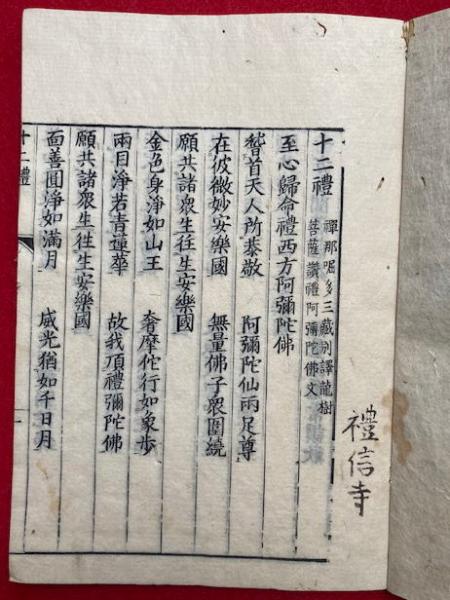 禮信寺
十二禮 禪那崛多三藏別譯龍樹
菩薩讚禮阿彌陀佛文
至心歸命禮西方阿彌陀佛
稽首天人所恭敬 阿彌陀仙兩足尊
在彼微妙安樂國 無量佛子衆圍繞
願共諸衆生往生安樂國
金色身淨如山王 奢摩佗行如象步
兩目淨若青蓮華 故我頂禮彌陀佛
願共諸衆生往生安樂國
面善圓淨如滿月 威光猶如千日月
十二禮 一